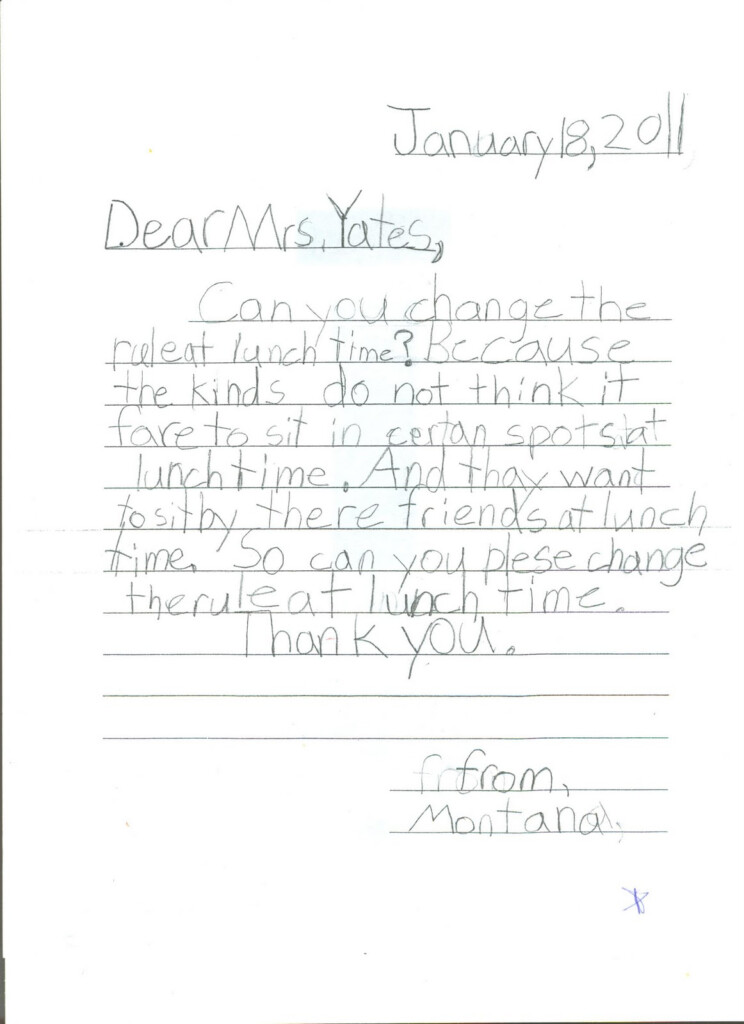 January 18, 2011
Dear Mrs. Yates,
Can you change the
rule at lunch time? Because
the kinds do not think it
fare to sit in certan spots at
lunch time. And thay want
to sit by there friends at lunch
time. So can you plese change
the rule at lunch time.
Thank you.
from,
Montana